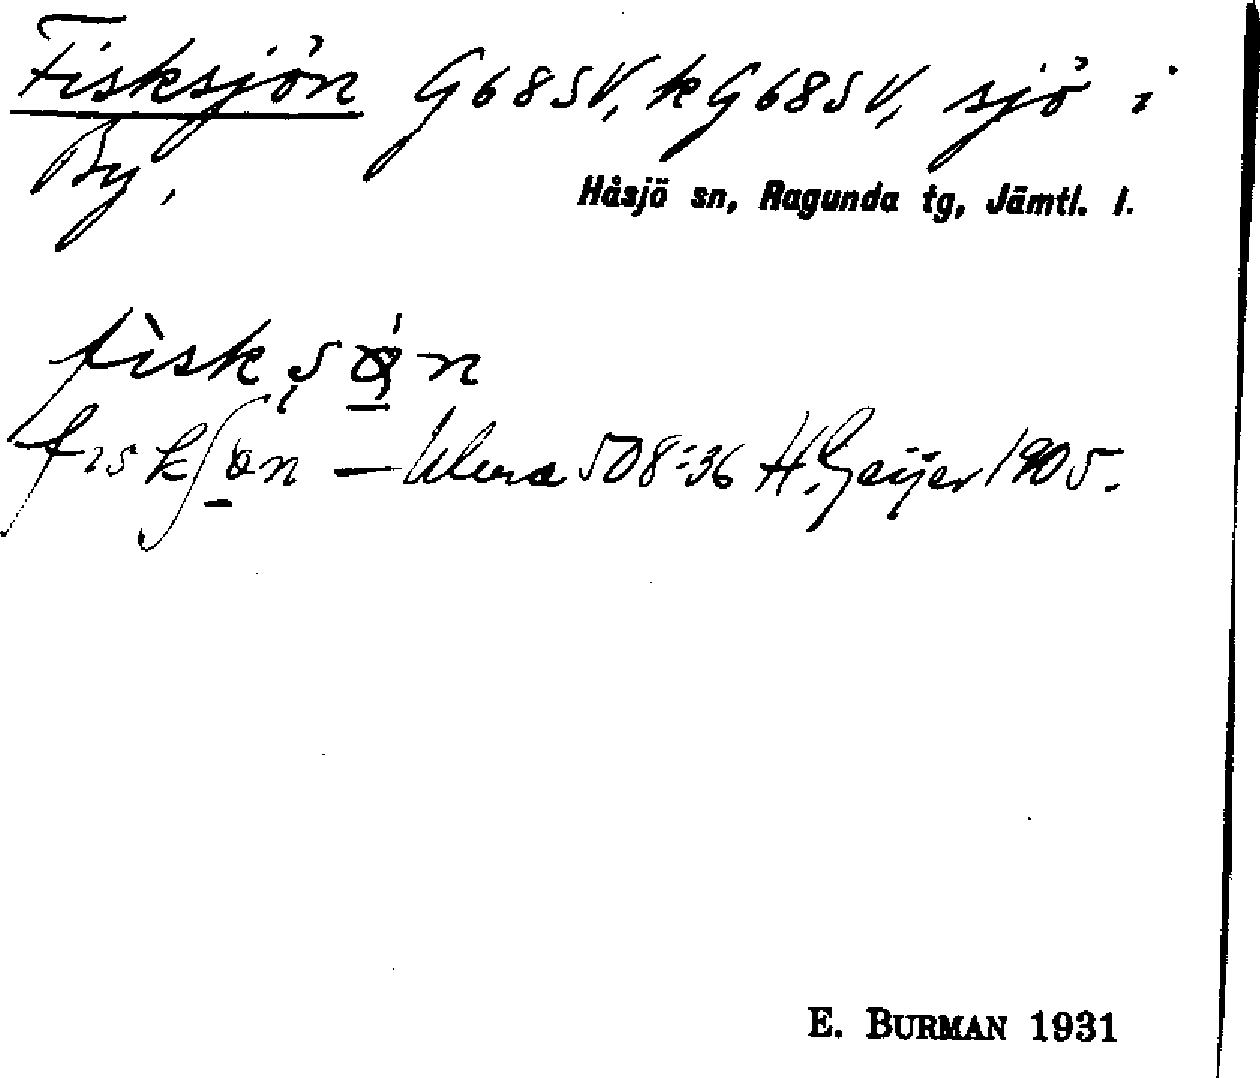 Fisksjön G68SV, kG68SV, sjö i
By.
Håsjö sn, Ragunda tg, Jämtl. l.
fisk
fiskʃøn — 508:36 H. Geijer 1905.
E. BURMAN 1931